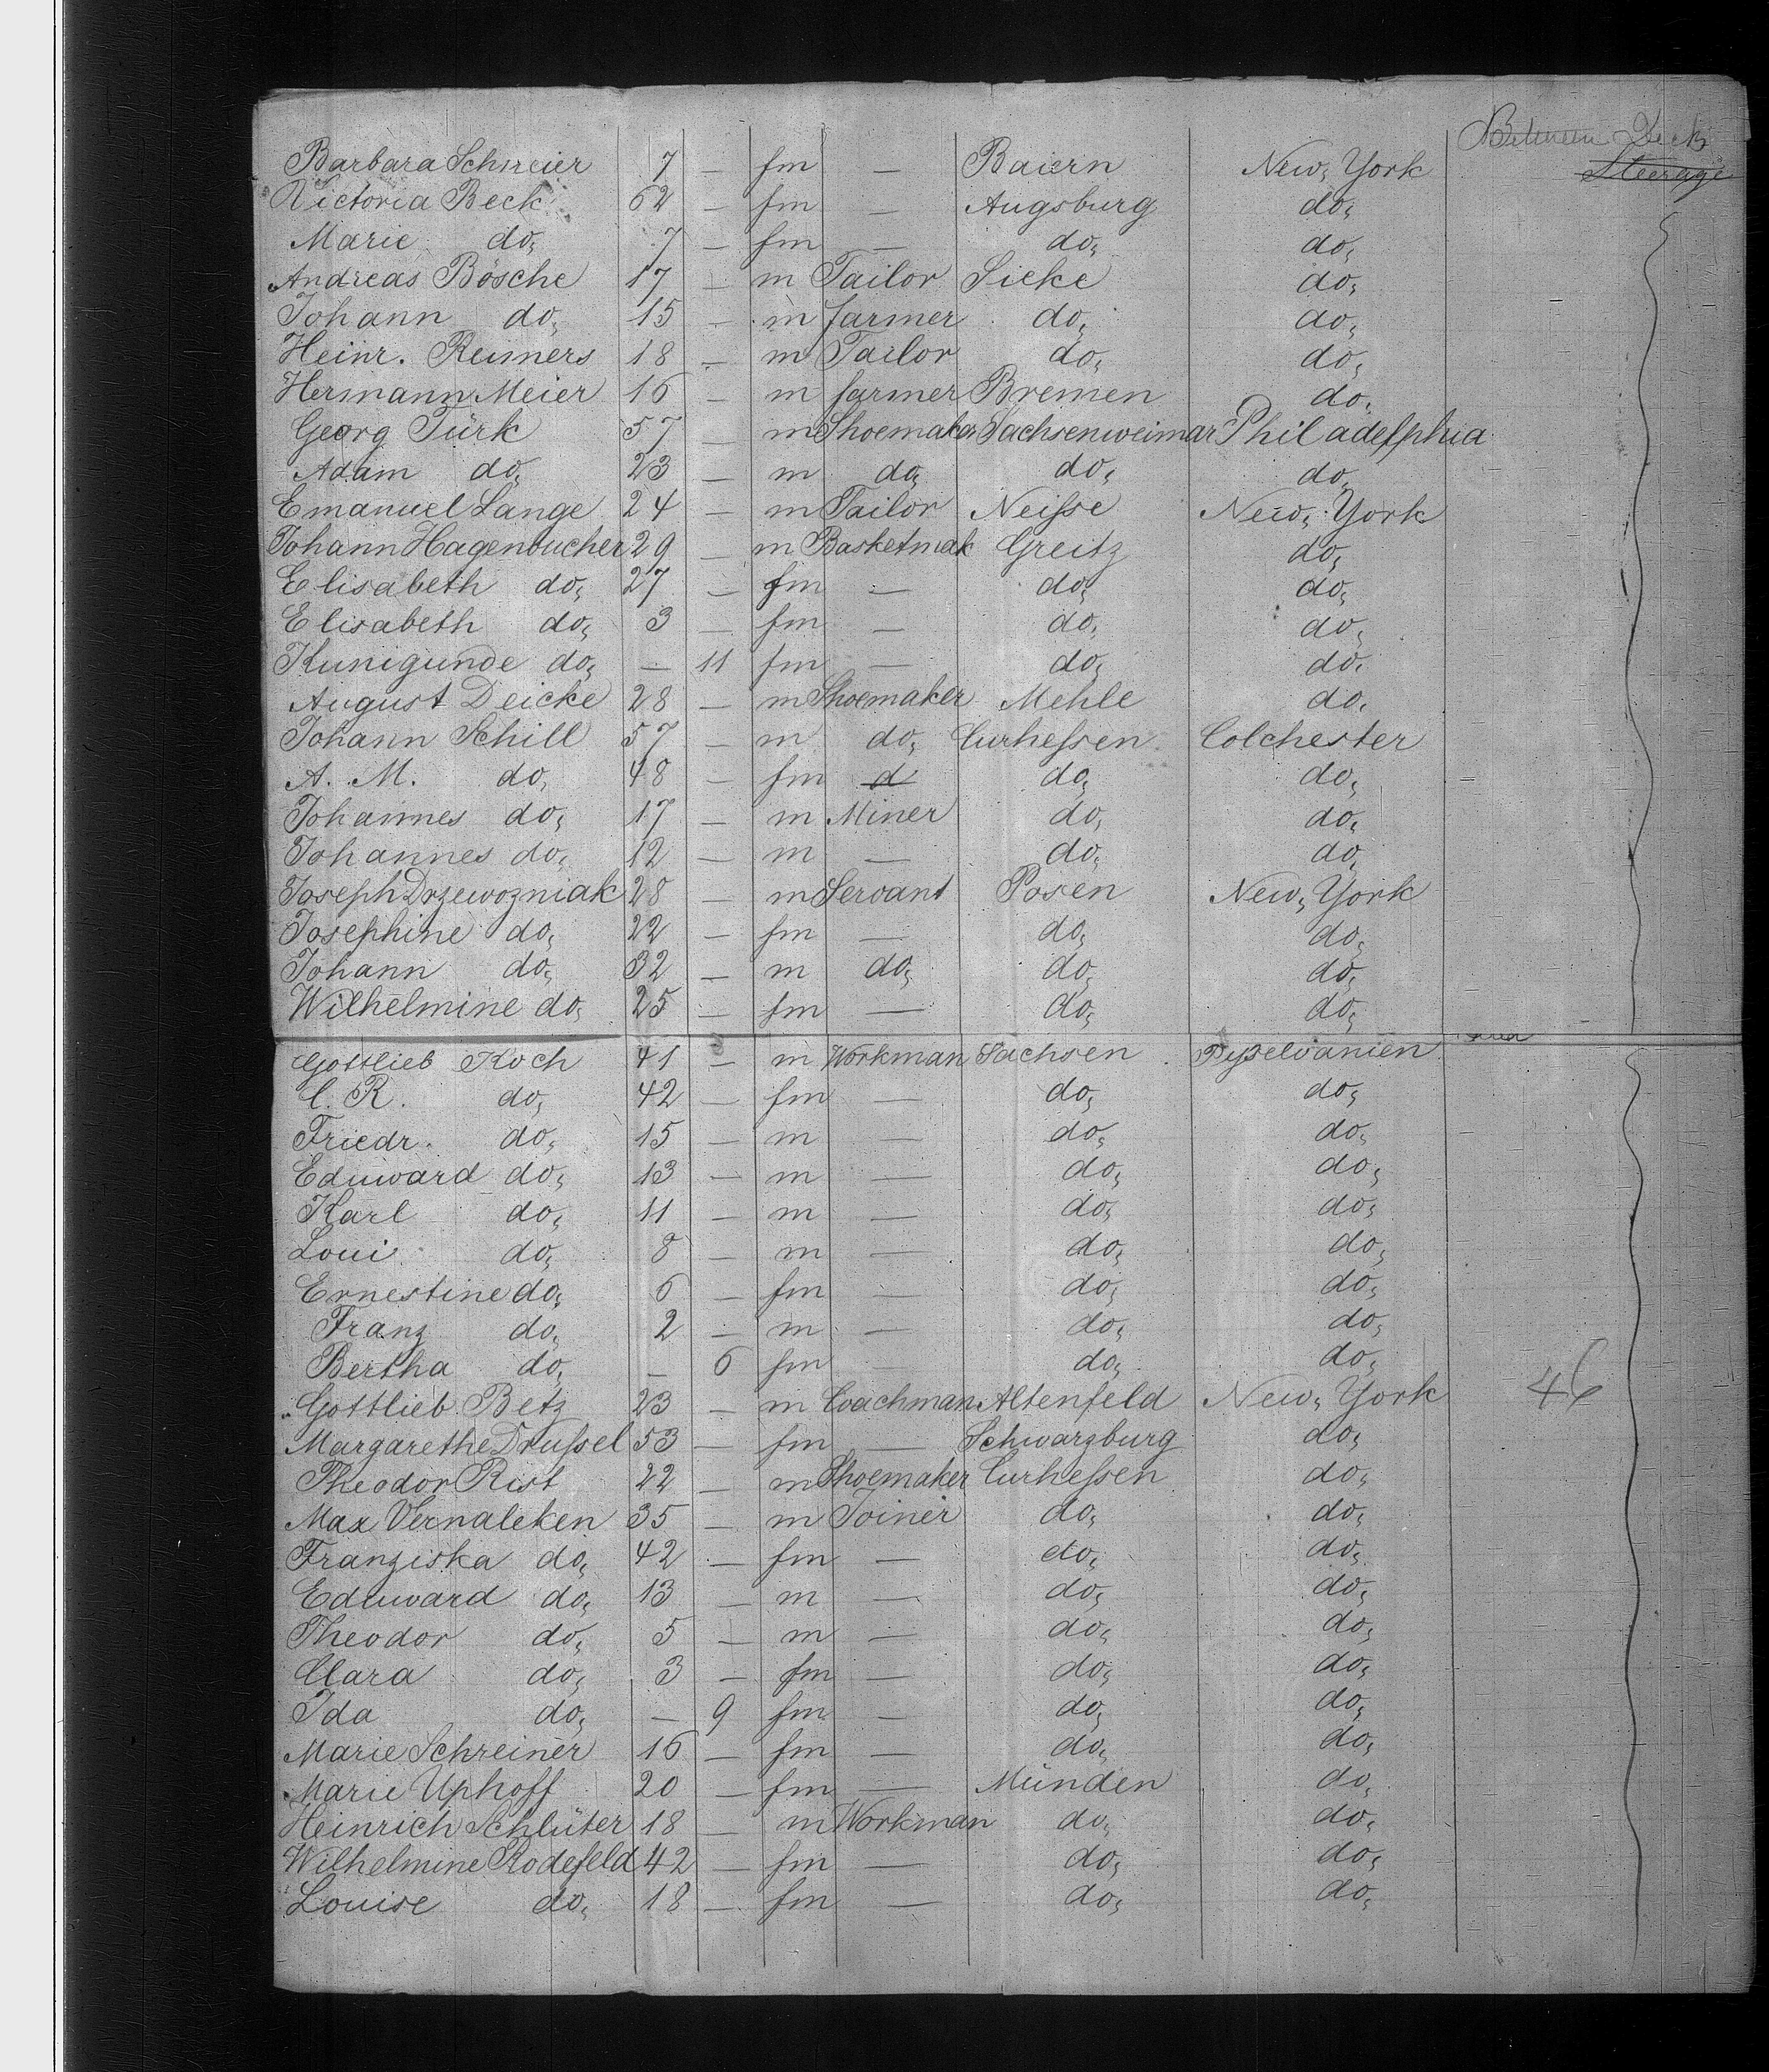 Between Deck
Steerage
Barbara Schreier 7 — fm — Baiern New York
Victoria Beck 62 — fm — Augsburg do,
Marie do, 7 — fm — do, do,
Andreas Bösche 17 — m Tailor Sieke do,
Johann do, 15 — m farmer do, do,
Heinr. Reimers 18 — m Tailor do, do,
Hermann Meier 16 — m farmer Bremen do,
Georg Türk 57 — m Shoemaker Sachsenweimar Philadelphia
Adam do, 23 — m do, do, do,
Emanuel Lange 24 — m Tailor Neisse New York
Johann Hagenbucher 29 — m Basketmak Greitz do,
Elisabeth do, 27 — fm — do, do,
Elisabeth do, 3 — fm — do, do,
Kunigunde do, — 11 fm — do, do,
August Deicke 28 — m Shoemaker Mehle do,
Johann Schill 57 — m do, Curhessen Colchester
A. M. do, 48 — fm d do, do,
Johannes do, 17 — m Miner do, do,
Johannes do, 12 — m — do, do,
Joseph Drzewozniak 28 — m Servant Posen New York
Josephine do, 22 — fm — do, do,
Johann do, 32 — m do, do, do,
Wilhelmine do, 25 — fm — do, do,
Gottlieb Koch 41 — m Workman Sachsen
C. R. do, 42 — fm — do, do,
Friedr. do, 15 — m — do, do,
Eduward do, 13 — m — do, do,
Karl do, 11 — m — do, do,
Loui do, 8 — m — do, do,
Ernestine do, 6 — fm — do, do,
Franz do, 2 — m — do, do,
Bertha do, — 6 fm — do, do,
Gottlieb Betz 23 — m Coachman Altenfeld New York 46
Margarethe Drussel 53 — fm — Schwarzburg do,
Theodor Rist 22 — m Shoemaker Curhessen do,
Max Vernaleken 35 — m Joiner do, do,
Franziska do, 42 — fm — do, do,
Eduward do, 13 — m — do, do,
Theodor do, 5 — m — do, do,
Clara do, 3 — fm — do, do,
Ida do, — 9 fm — do, do,
Marie Schreiner 16 — fm — do, do,
Marie Uphoff 20 — fm — Münden do,
Heinrich Schlüter 18 — m Workman do, do,
Wilhelmine Rodefeld 42 — fm — do, do,
Louise do, 18 — fm — do, do,